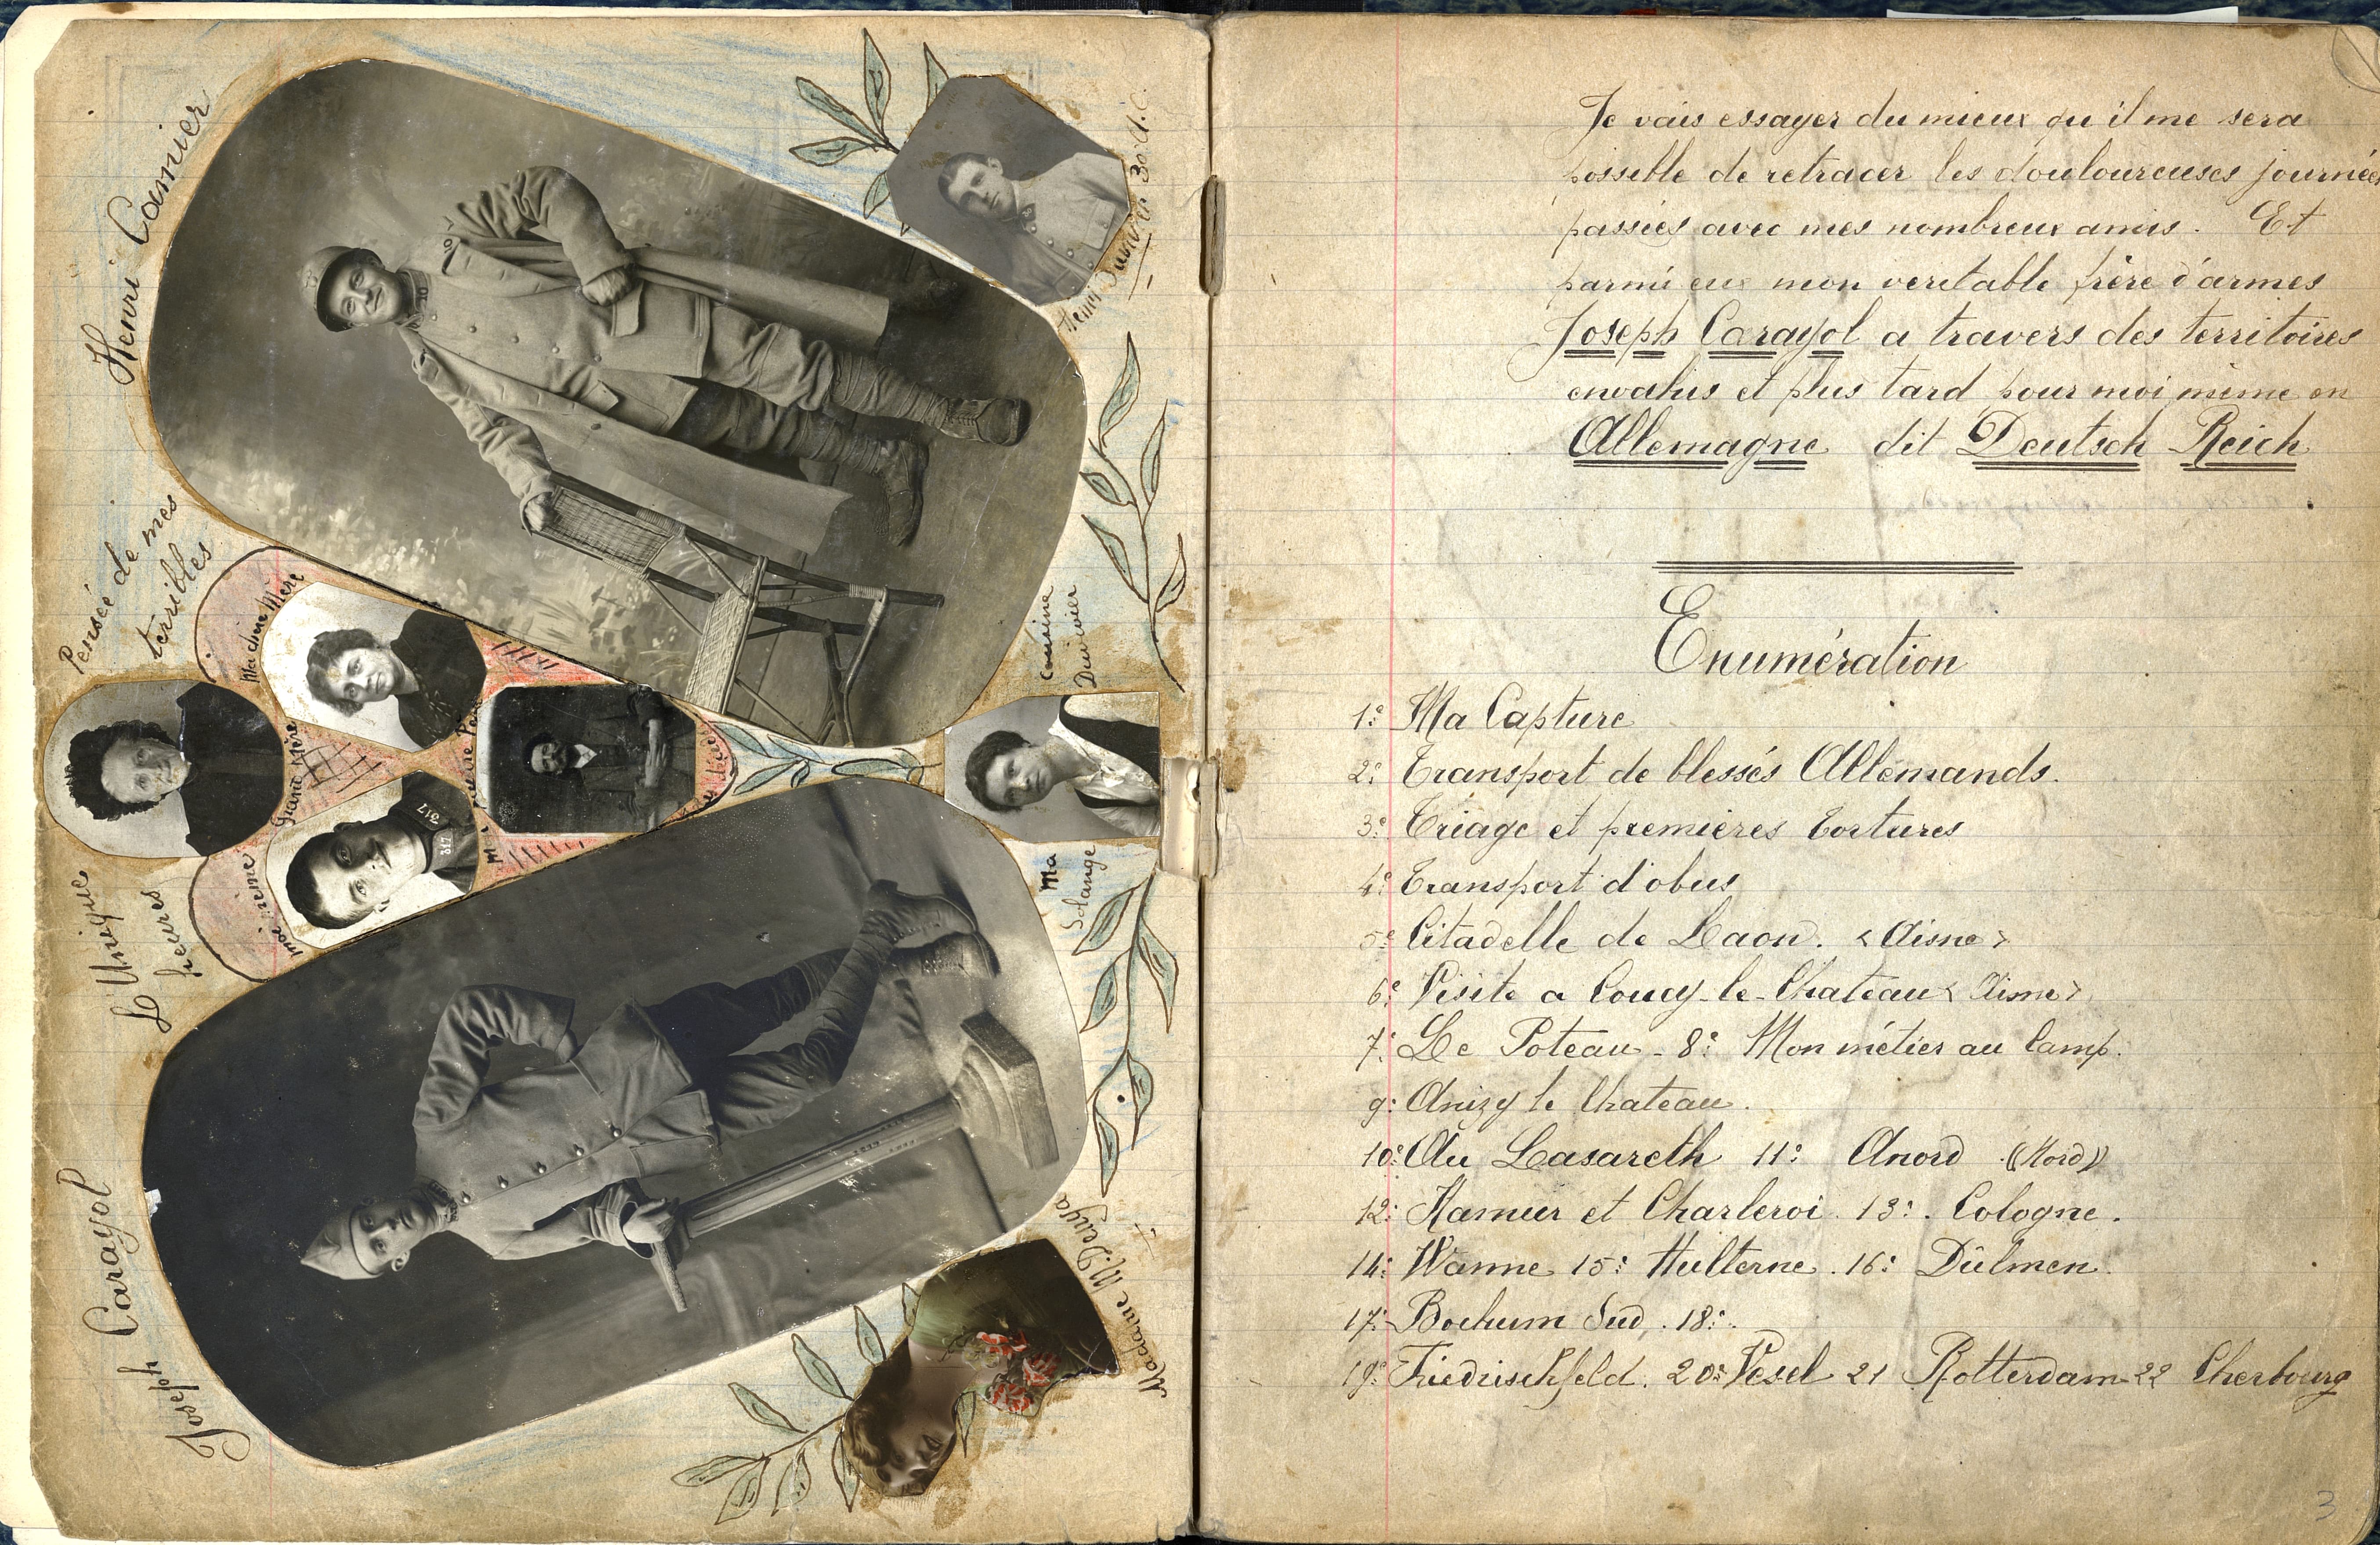 Joseph Carayol
L'Unique Pensée de mes
heures terribles
Henri Camier
moi même
Grand mère
Ma chère Mère
317
317
Ma Cousine
Solange Duvivier
Madame M. Deuya
Henri Duvivier 30.A.C.
Je vais essayer du mieux qu'il me sera
possible de retracer les douloureuses journées
passées avec mes nombreux amis. Et
parmi eux mon veritable frère d'armes
Joseph Carayol a travers des territoires
envahis et plus tard pour moi même en
Allemagne dit Deutsch Reich
Enumération
1º: Ma Capture
2º: Transport de blessés Allemands.
3º: Triage et premières tortures
4º: Transport d'obus
5º: Citadelle de Laon. <Aisne>
6º: Visite a Coucy-le-Chateau <Aisne>
7º: Le Poteau - 8º: Mon métier au Camp.
9º: Anizy le Chateau.
10º: Au Lasareth 11º: Anord ((Nord))
12º: Namur et Charleroi 13º: Cologne.
14º: Wanne 15º: Hulterne. 16º: Dülmen.
17º: Bochum Sud. 18º:
19º: Friedrischfeld. 20º: Vesel 21 Rotterdam 22 Cherbourg
3